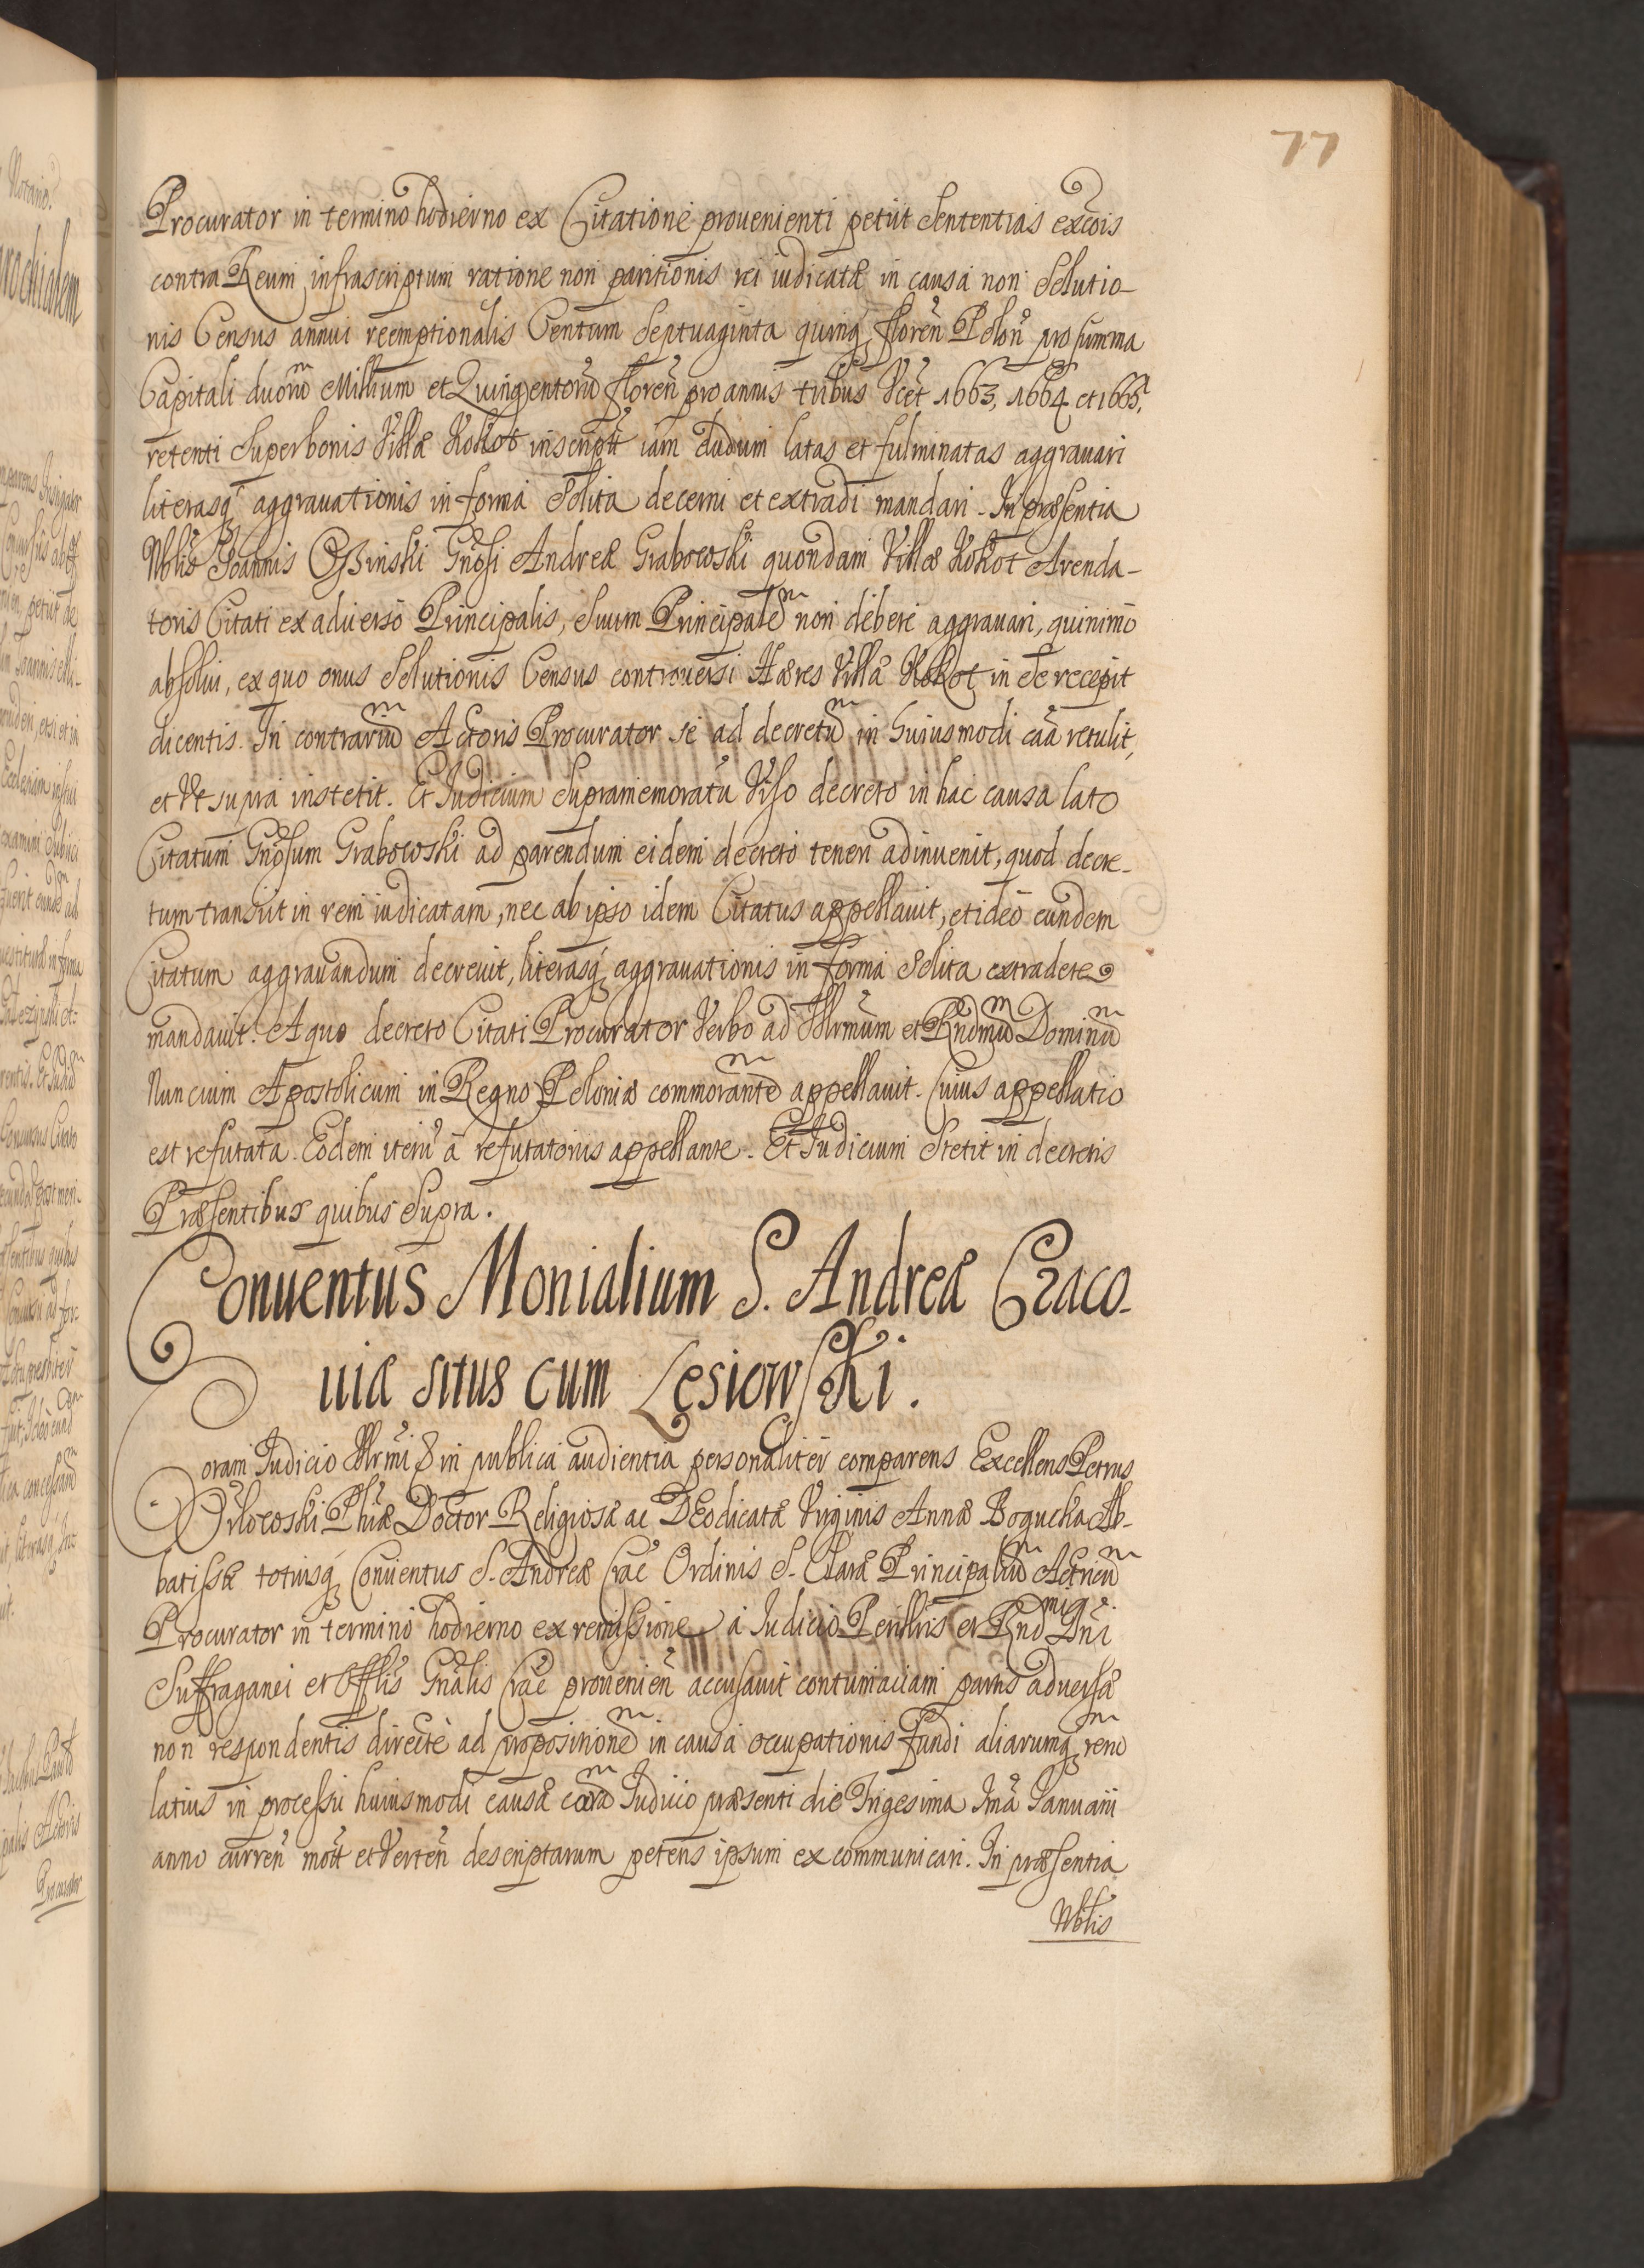 77
Procurator in termino hodierno ex Citatione prouenienti petiit Sententias excōis
contra Reum infrascriptum ratione non paritionis rei iudicatæ in causa non Solutio-
nis Census annui reemptionalis Centum Septuaginta quinq florēn Polōn pro summa
Capitali duorū Millium et Quingentorū florēn pro annis tribus Vcēt 1663, 1664 et 1665.
retenti Super bonis Villæ Kokot inscripti iam dudum latas et fulminatas aggrauari
literasq aggrauationis in forma Solita decerni et extradi mandari. In præsentia
Nobīlis Joannis Gnōsi Andreæ Grabowski quondam Villæ Kokot Arenda-
toris Citati ex aduerso Principalis, Suum Principalē non debere aggrauari, quinimo
absolui, ex quo onus Solutionis Census controuersi Hæres Villæ Kokot in Se recepit
dicentis. In contrariū Actoris Procurator se ad decretū in huiusmodi cāa retulit,
et Vt supra institit. Et Iudicium Supramemoratū Viso decreto in hac causa lato
Citatum Gnōsum Grabowski ad parendum eidem decreto teneri adinuenit, quod decre-
tum transiit in rem iudicatam, nec ab ipso idem Citatus appellauit, et ideo eundem
Citatum aggrauandum decreuit, literasq aggrauationis in forma Solita extradere
mandauit. A quo decreto Citati Procurator Verbo ad Illrmūm et Rndmū Dominū
Nuncium Apostolicum in Regno Poloniæ commorantē appellauit. Cuius appellatio
est refutata. Eodem iterū a refutatoriis appellante. Et Iudicium Stetit in decretis
Præsentibus quibus Supra.
Conuentus Monialium S. Andreæ Craco-
uiæ situs cum Lesiowski.
Coram Iudicio Illrmī & in publica audientia personaliter comparens Excellens Petrus
Orlowski Phīæ Doctor Religiosæ ac DEo dicatæ Virginis Annæ Bogucka Ab-
batissæ totiusq Conuentus S. Andreæ Crac̄ Ordinis S. Claræ Principaliū Actricū
Procurator in termino hodierno ex remissione a Iudicio Perillris et Rnd̄mi Dn̄i
Suffraganei et Offlis Gnālis Crac̄ prouenien̄ accusauit contumaciam partis aduersæ
non respondentis directè ad propositionē in causa occupationis fundi aliarumq rerū
latius in processu huiusmodi causæ corā Iudicio præsenti die Trigesima Imā Ianuarii
anno curren̄ mōt et Verten̄ descriptarum petens ipsum excommunicari. In præsentia
Nblīs